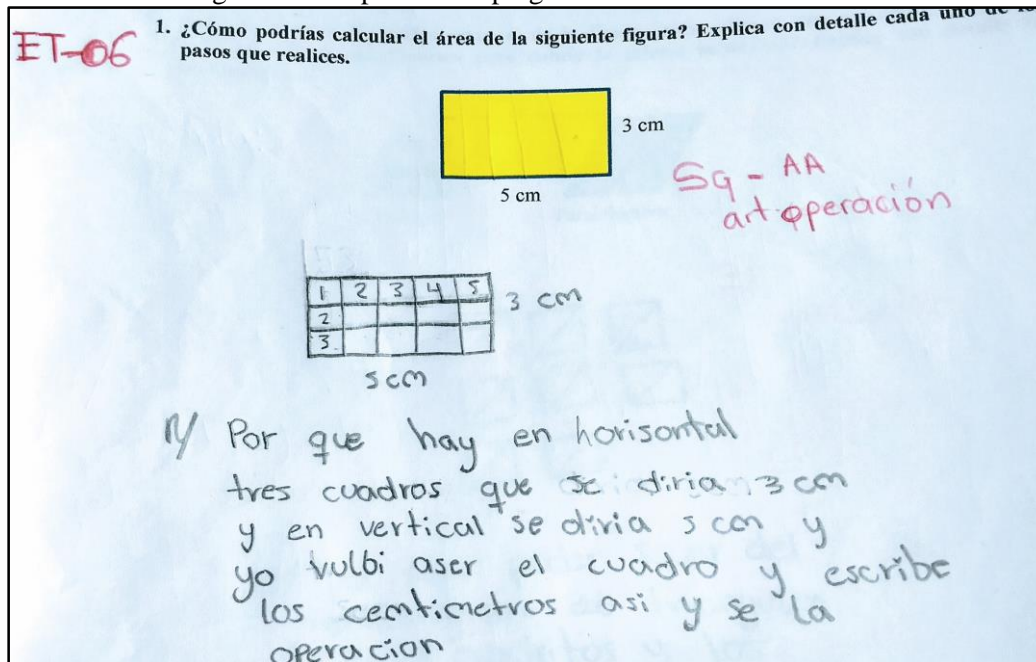 ET-06
1. ¿Cómo podrías calcular el área de la siguiente figura? Explica con detalle cada uno de
pasos que realices.
3 cm
5 cm
Sg - AA
art operación
1 2 3 4 5
2
3.
3 cm
5 cm
R/ Por que hay en horisontal
tres cuadros que se diria 3 cm
y en vertical se diria 5 cm y
yo vulbi aser el cuadro y escribe
los centimetros asi y se la
operacion